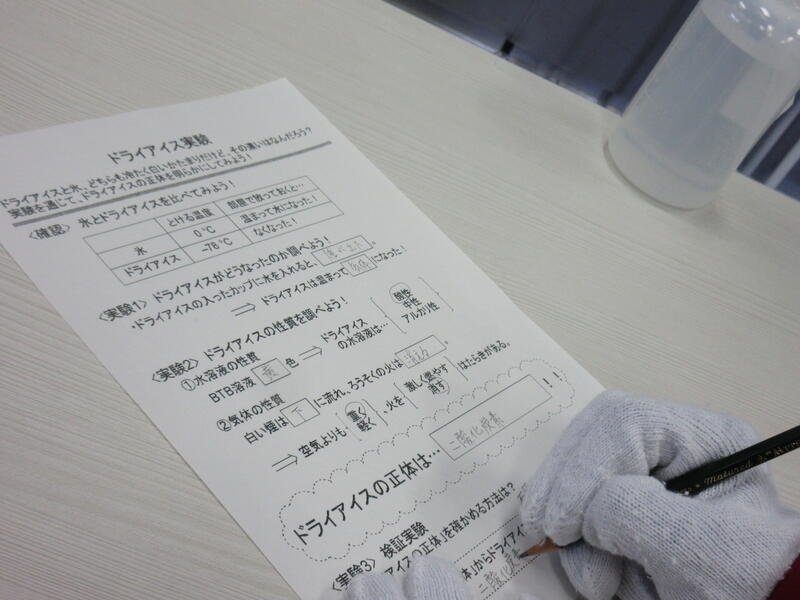 ドライアイス実験
ドライアイスと氷、どちらも冷たく白いかたまりだけど、その違いはなんだろう?
実験を通じて、ドライアイスの正体を明らかにしてみよう!
〈確認〉 氷とドライアイスを比べてみよう!
とける温度 部屋で放っておくと…
氷 0℃ 温まって水になった!
ドライアイス -78℃ なくなった!
〈実験1〉 ドライアイスがどうなったのか調べよう!
・ドライアイスの入ったカップに水を入れると、 。
⇒ ドライアイスは温まって 気体 になった!
〈実験2〉 ドライアイスの性質を調べよう!
①水溶液の性質
BTB溶液 黄 色 ⇒ ドライアイスの水溶液は… 酸性 中性 アルカリ性
②気体の性質
白い煙は 下 に流れ、ろうそくの火は 消えた 。
⇒ 空気よりも 重く 軽く 、火を 激しく燃やす 消す はたらきがある。
ドライアイスの正体は… 二酸化炭素 !!
〈実験3〉 検証実験
アイスの正体」を確かめる方法は?
体」からドライアイ
二酸化炭素
Matured